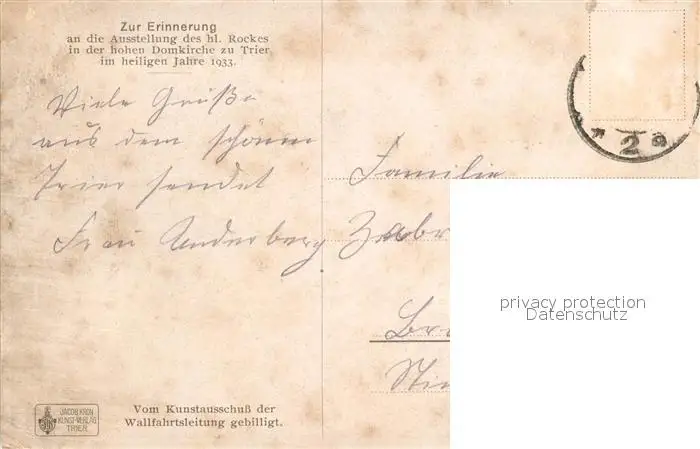 Zur Erinnerung
an die Ausstellung des hl. Rockes
in der hohen Domkirche zu Trier
im heiligen Jahre 1933.
Viele Grüße
aus dem schönen
Trier sendet
Frau Underberg
Familie
2 a
privacy protection
Datenschutz
JACOB KRON
KUNST-VERLAG
TRIER
Vom Kunstausschuß der
Wallfahrtsleitung gebilligt.